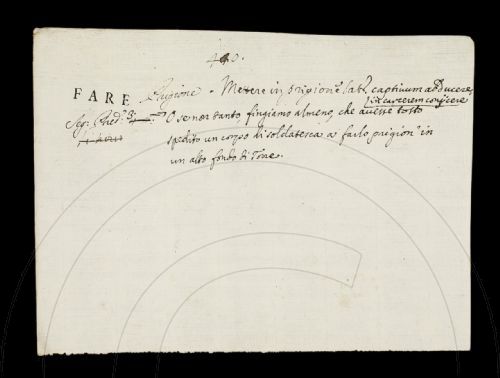 490.
FARE Prigione. Metere in prigione lat. captivum adducere,
in carcerem conijcere
Seg: Pred: O se non tanto, fingiamo almeno, che avesse tosto
spedito un corpo di soldatesca a farlo prigion' in
un alto fondo di Torre.